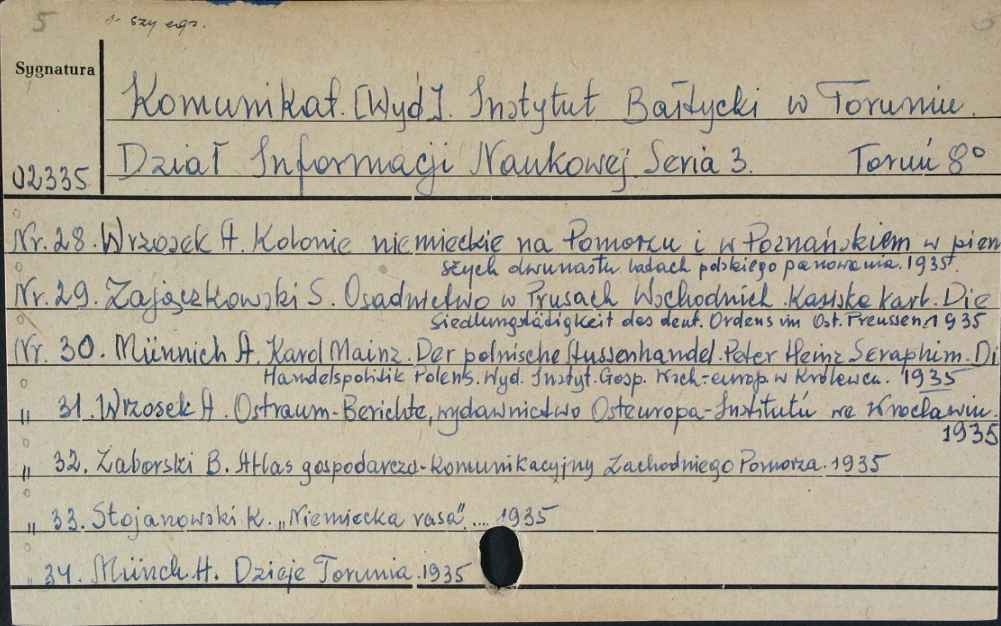 5
szy egz.
Sygnatura
Komunikat. [Wyd]. Instytut Bałtycki w Toruniu.
02335
Dział Informacji Naukowej. Seria 3. Toruń 8°
Nr. 28. Wrzosek A. Kolonie niemieckie na Pomorzu i w Poznańskiem w pierw
szych dwunastu latach polskiego panowania. 1935.
Nr. 29. Zajączkowski S. Osadnictwo w Prusach Wschodnich. Kasiske Karl. Die
Siedlungstädigkeit des deut. Ordens im Ost. Preussen. 1935
Nr. 30. Münnich A. Karol Mainz. Der polnische Aussenhandel. Peter Heinz Seraphim. Di
Handelspolitik Polens. Wyd. Instyt. Gosp. Wsch.-europ. w Królewcu. 1935
„ 31. Wrzosek A. Ostraum-Berichte, wydawnictwo Osteuropa-Institutú we Wrocławiu.
1935
„ 32. Zaborski B. Atlas gospodarczo-komunikacyjny Zachodniego Pomorza. 1935
„ 33. Stojanowski K. „Niemiecka rasa".... 1935
„ 34. Münch H. Dzieje Torunia. 1935